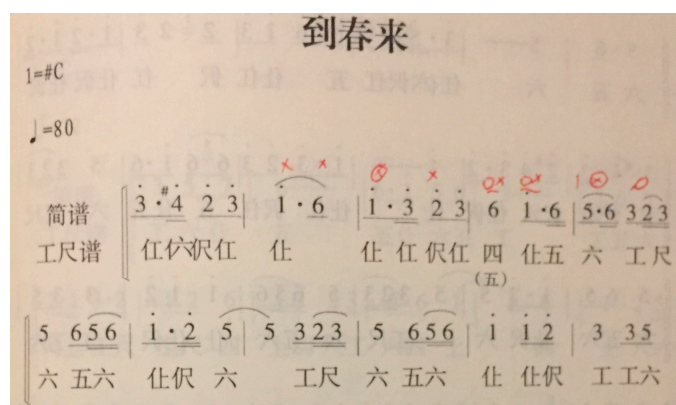 到春来
1=#C
♩=80
简谱 3·#4 2 3 | 1·6 | 1·3 2 3 | 6 1·6 | 5·6 3 2 3
工尺谱 仜伬六伬仜 仩 仩 仜 伬仜 四 仩五 六 工尺
(五)
5 6 5 6 | 1·2 5 | 5 3 2 3 | 5 6 5 6 | 1 1 2 | 3 3 5
六 五六 仩伬 六 工尺 六 五六 仩 仩伬 工 工六